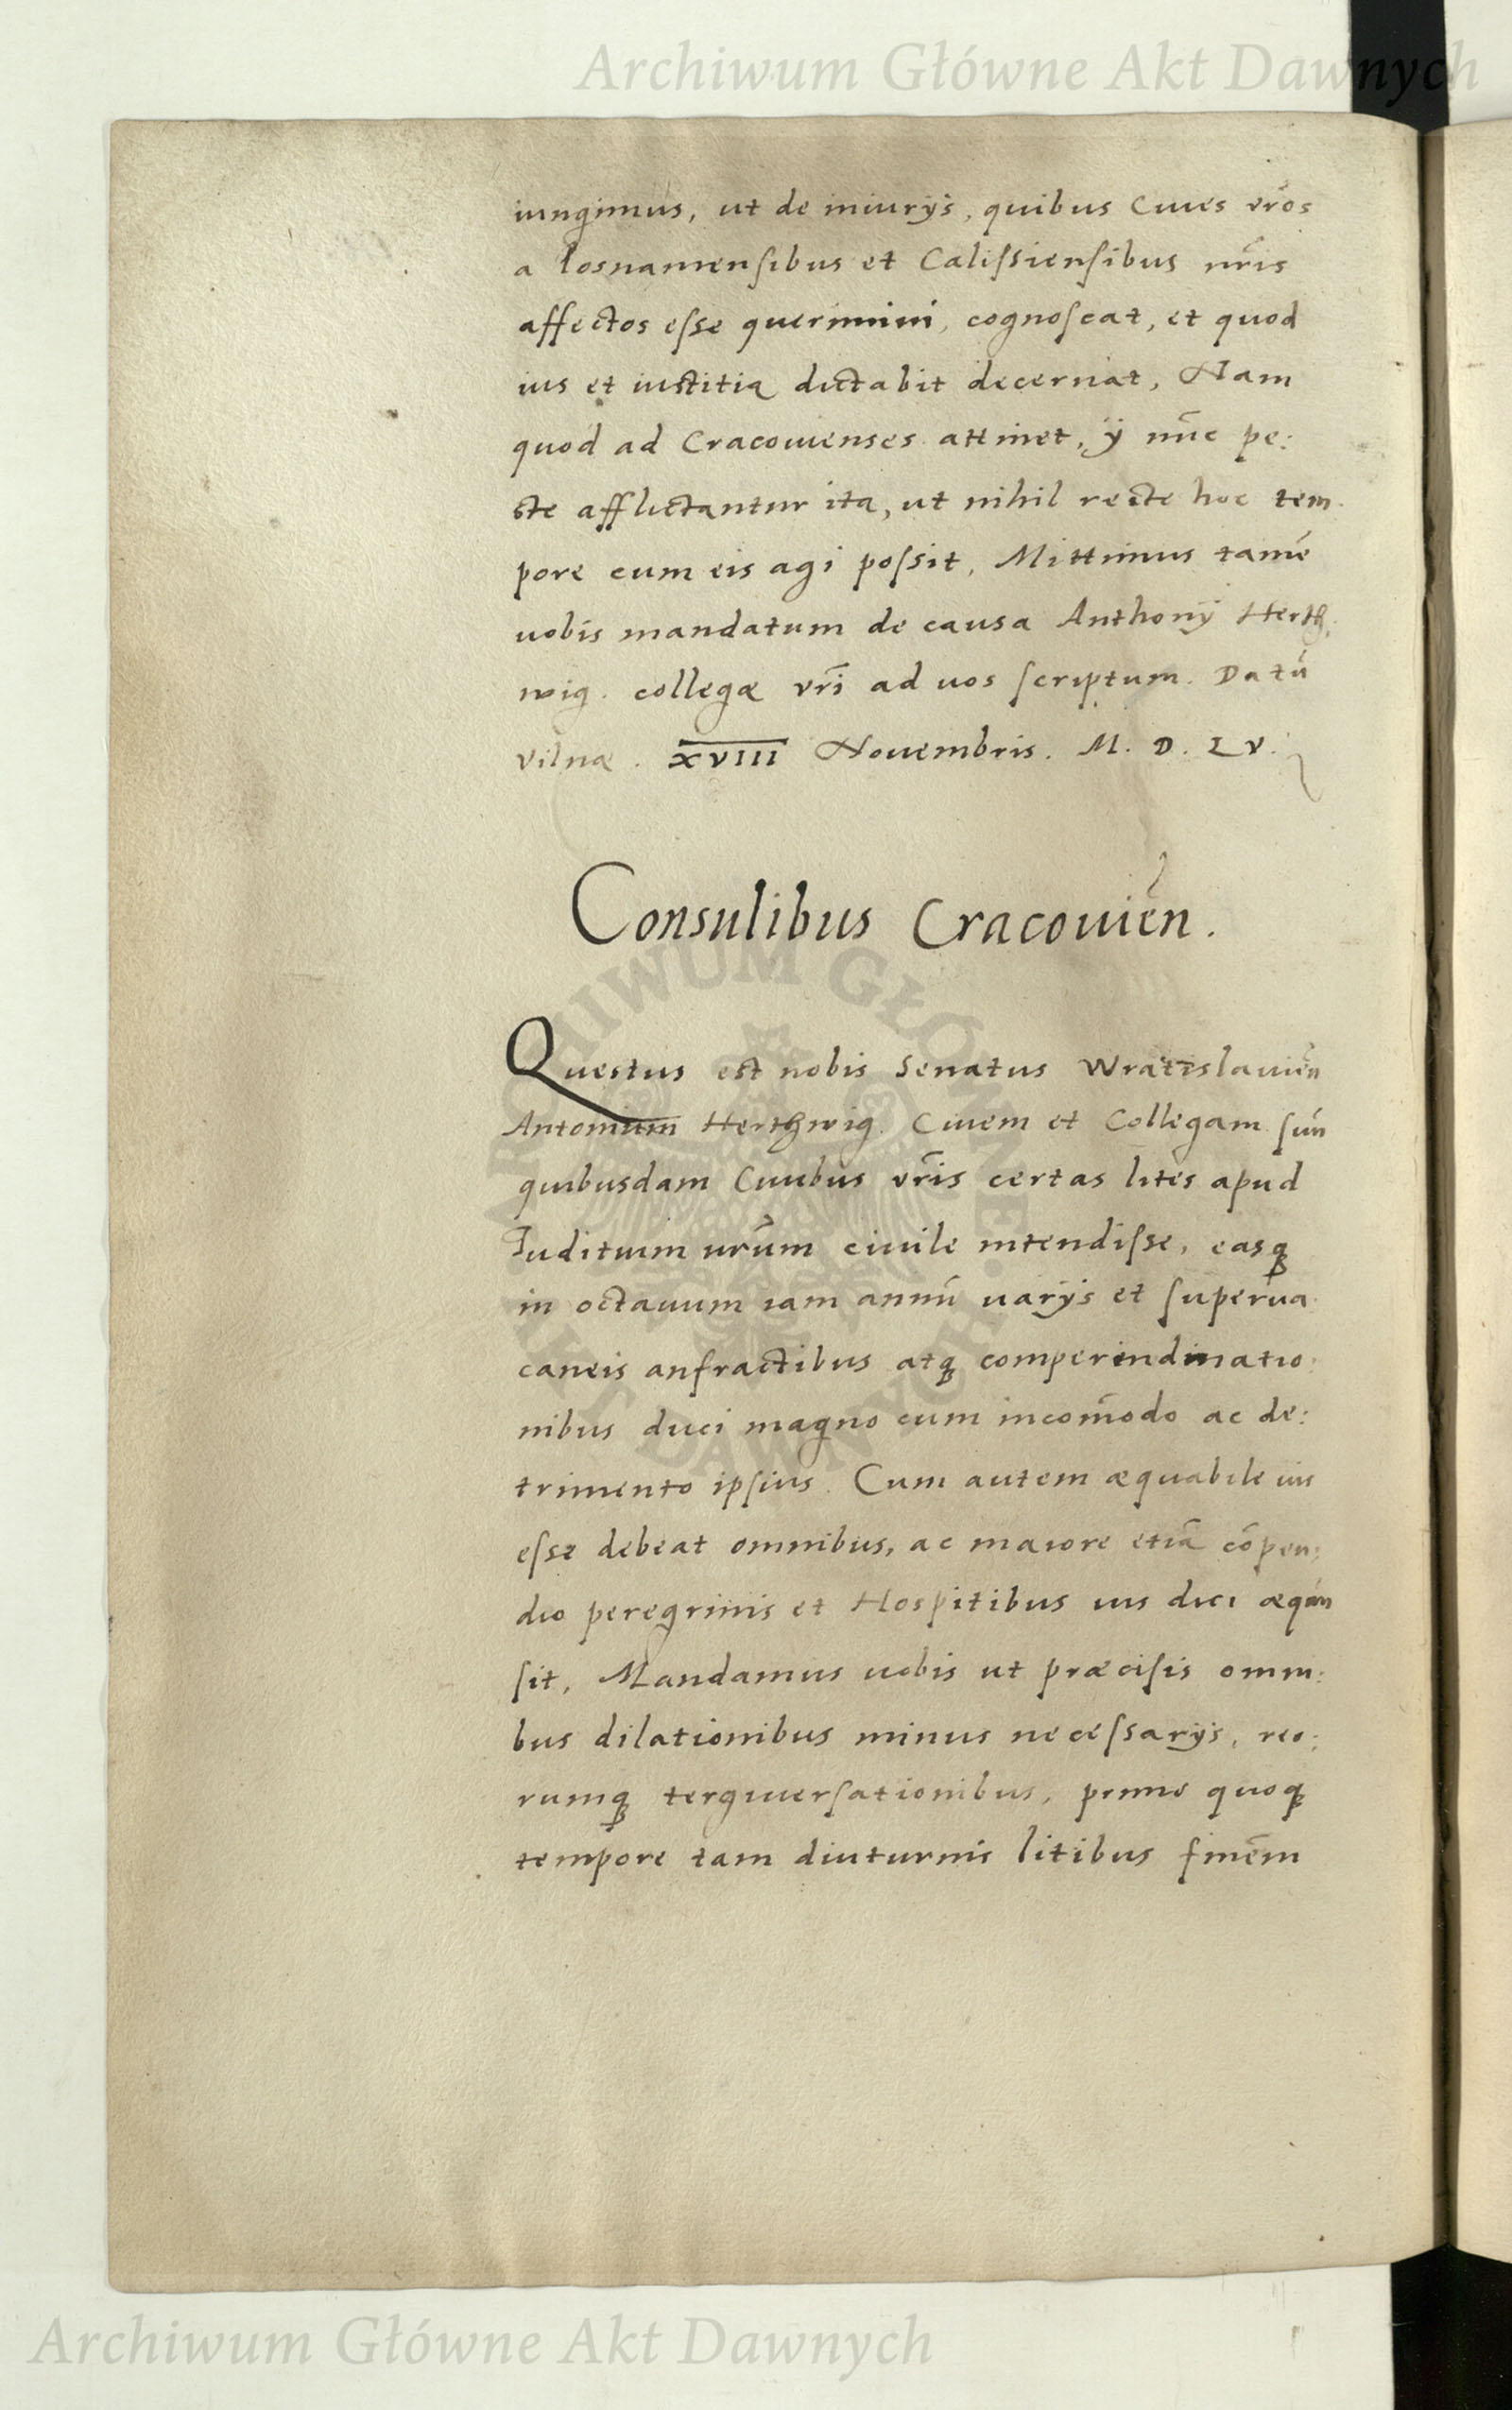 Archiwum Główne Akt Dawnych
iungimus, ut de iniurijs, quibus Ciues vr̃os
a Posnaniensibus et Calissiensibus nr̃is
affectos esse querimini, cognoscat, et quod
ius et iustitia dictabit decernat, Nam
quod ad Cracouienses attinet, ij nũc pe:
ste afflictantur ita, ut nihil recte hoc tem
pore cum eis agi possit, Mittimus tamẽ
uobis mandatum de causa Anthonij Herth,
wig. collegæ vr̃i ad uos scriptum. Datũ
Vilnæ. XVIII Nouembris. M. D. LV.
Consulibus Cracouień.
Questus est nobis Senatus Wratislauień
Antonium Herthwig. Ciuem et Collegam suũ
quibusdam Ciuibus vr̃is certas lites apud
Iuditium ur̃um ciuile intendisse, easq́
in octauum iam annũ uarijs et superua
caneis anfractibus atq́ comperendinatio:
nibus duci magno cum incom̃odo ac de:
trimento ipsius. Cum autem æquabile ius
esse debeat omnibus, ac maiore etiã cõpen:
dio peregrinis et Hospitibus ius dici æqũm
sit, Mandamus uobis ut præcisis omni:
bus dilationibus minus necessarijs, reo:
rumq́ terguuersationibus, primo quoq́
tempore tam diuturnis litibus finẽm
ARCHIWUM GŁÓWNE AKT DAWNYCH
Archiwum Główne Akt Dawnych